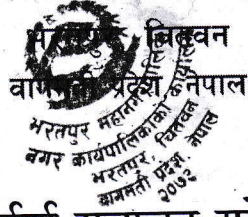 भरतपुर, चितवन
बागमती प्रदेश, नेपाल
भरतपुर महानगरपालिका
नगर कार्यपालिकाको कार्यालय
भरतपुर, चितवन
बागमती प्रदेश, नेपाल
२०७३